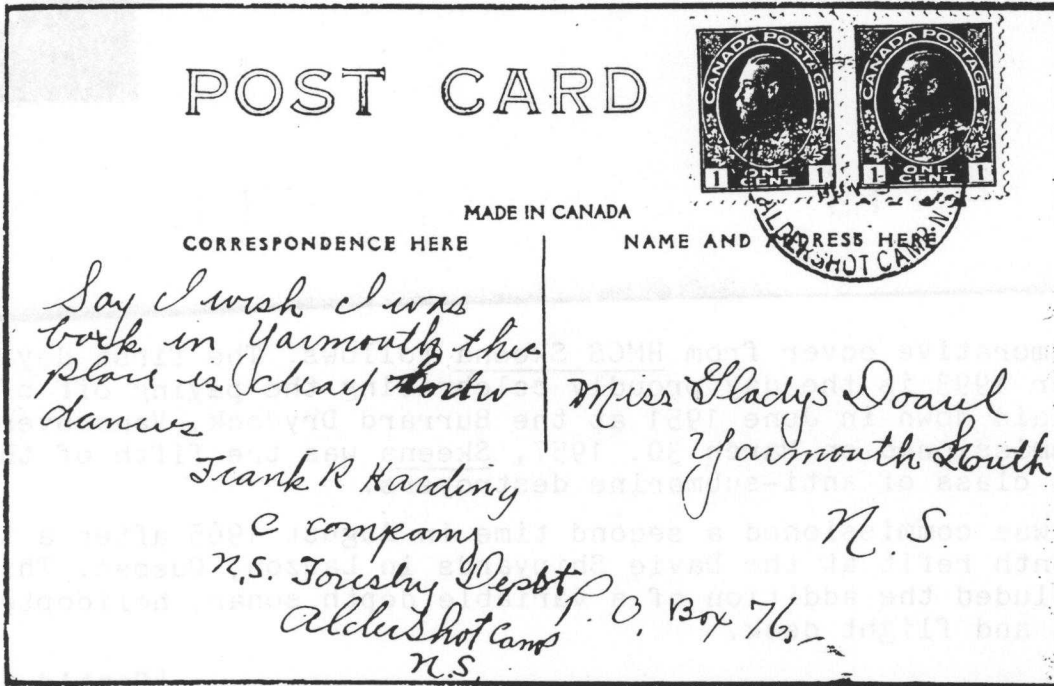 POST CARD
CANADA POSTAGE
1 ONE CENT 1
CANADA POSTAGE
1 ONE CENT 1
ALDERSHOT CAMP. N.
MADE IN CANADA
CORRESPONDENCE HERE
NAME AND ADDRESS HERE
Say I wish I was
back in Yarmouth this
place is
dances
Frank P. Harding
C company
N.S. Forestry Dept
Aldershot Camp
N.S.
Miss Gladys
Yarmouth South
N. S.
P. O. Box